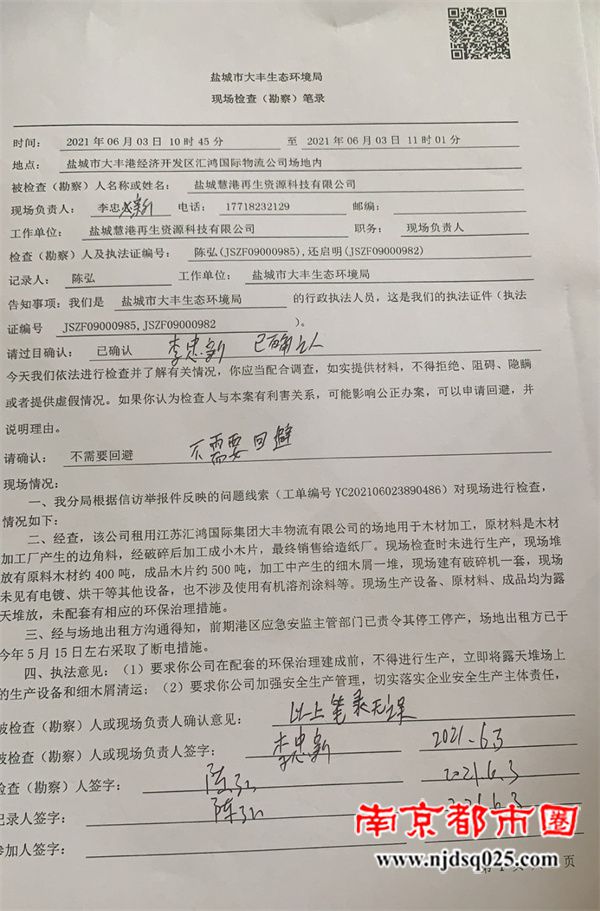 盐城市大丰生态环境局
现场检查（勘察）笔录
时间： 2021 年 06 月 03 日 10 时 45 分 至 2021 年 06 月 03 日 11 时 01 分
地点： 盐城市大丰港经济开发区汇鸿国际物流公司场地内
被检查（勘察）人名称或姓名： 盐城慧港再生资源科技有限公司
现场负责人： 李忠新 电话： 17718232129 邮编：
工作单位： 盐城慧港再生资源科技有限公司 职务： 现场负责人
检查（勘察）人及执法证编号： 陈弘(JSZF09000985),还启明(JSZF09000982)
记录人： 陈弘 工作单位： 盐城市大丰生态环境局
告知事项：我们是 盐城市大丰生态环境局 的行政执法人员，这是我们的执法证件（执法
证编号 JSZF09000985,JSZF09000982 ）。
请过目确认： 已确认 李忠新 已确认
今天我们依法进行检查并了解有关情况，你应当配合调查，如实提供材料，不得拒绝、阻碍、隐瞒
或者提供虚假情况。如果你认为检查人与本案有利害关系，可能影响公正办案，可以申请回避，并
说明理由。
请确认： 不需要回避 不需要回避
现场情况：
一、我分局根据信访举报件反映的问题线索（工单编号 YC202106023890486）对现场进行检查，
情况如下：
二、经查，该公司租用江苏汇鸿国际集团大丰物流有限公司的场地用于木材加工，原材料是木材
加工厂产生的边角料，经破碎后加工成小木片，最终销售给造纸厂。现场检查时未进行生产，现场堆
放有原料木材约 400 吨，成品木片约 500 吨，加工中产生的细木屑一堆，现场建有破碎机一套，现场
未见有电镀、烘干等其他设备，也不涉及使用有机溶剂涂料等。现场生产设备、原材料、成品均为露
天堆放，未配套有相应的环保治理措施。
三、经与场地出租方沟通得知，前期港区应急安监主管部门已责令其停工停产，场地出租方已于
今年 5 月 15 日左右采取了断电措施。
四、执法意见：（1）要求你公司在配套的环保治理建成前，不得进行生产，立即将露天堆场上
的生产设备和细木屑清运；（2）要求你公司加强安全生产管理，切实落实企业安全生产主体责任，
被检查（勘察）人或现场负责人确认意见： 以上笔录无误
被检查（勘察）人或现场负责人签字： 李忠新 2021.6.3
检查（勘察）人签字： 陈弘 2021.6.3
记录人签字： 陈弘 2021.6.3
参加人签字：
南京都市圈
www.njdsq025.com
页